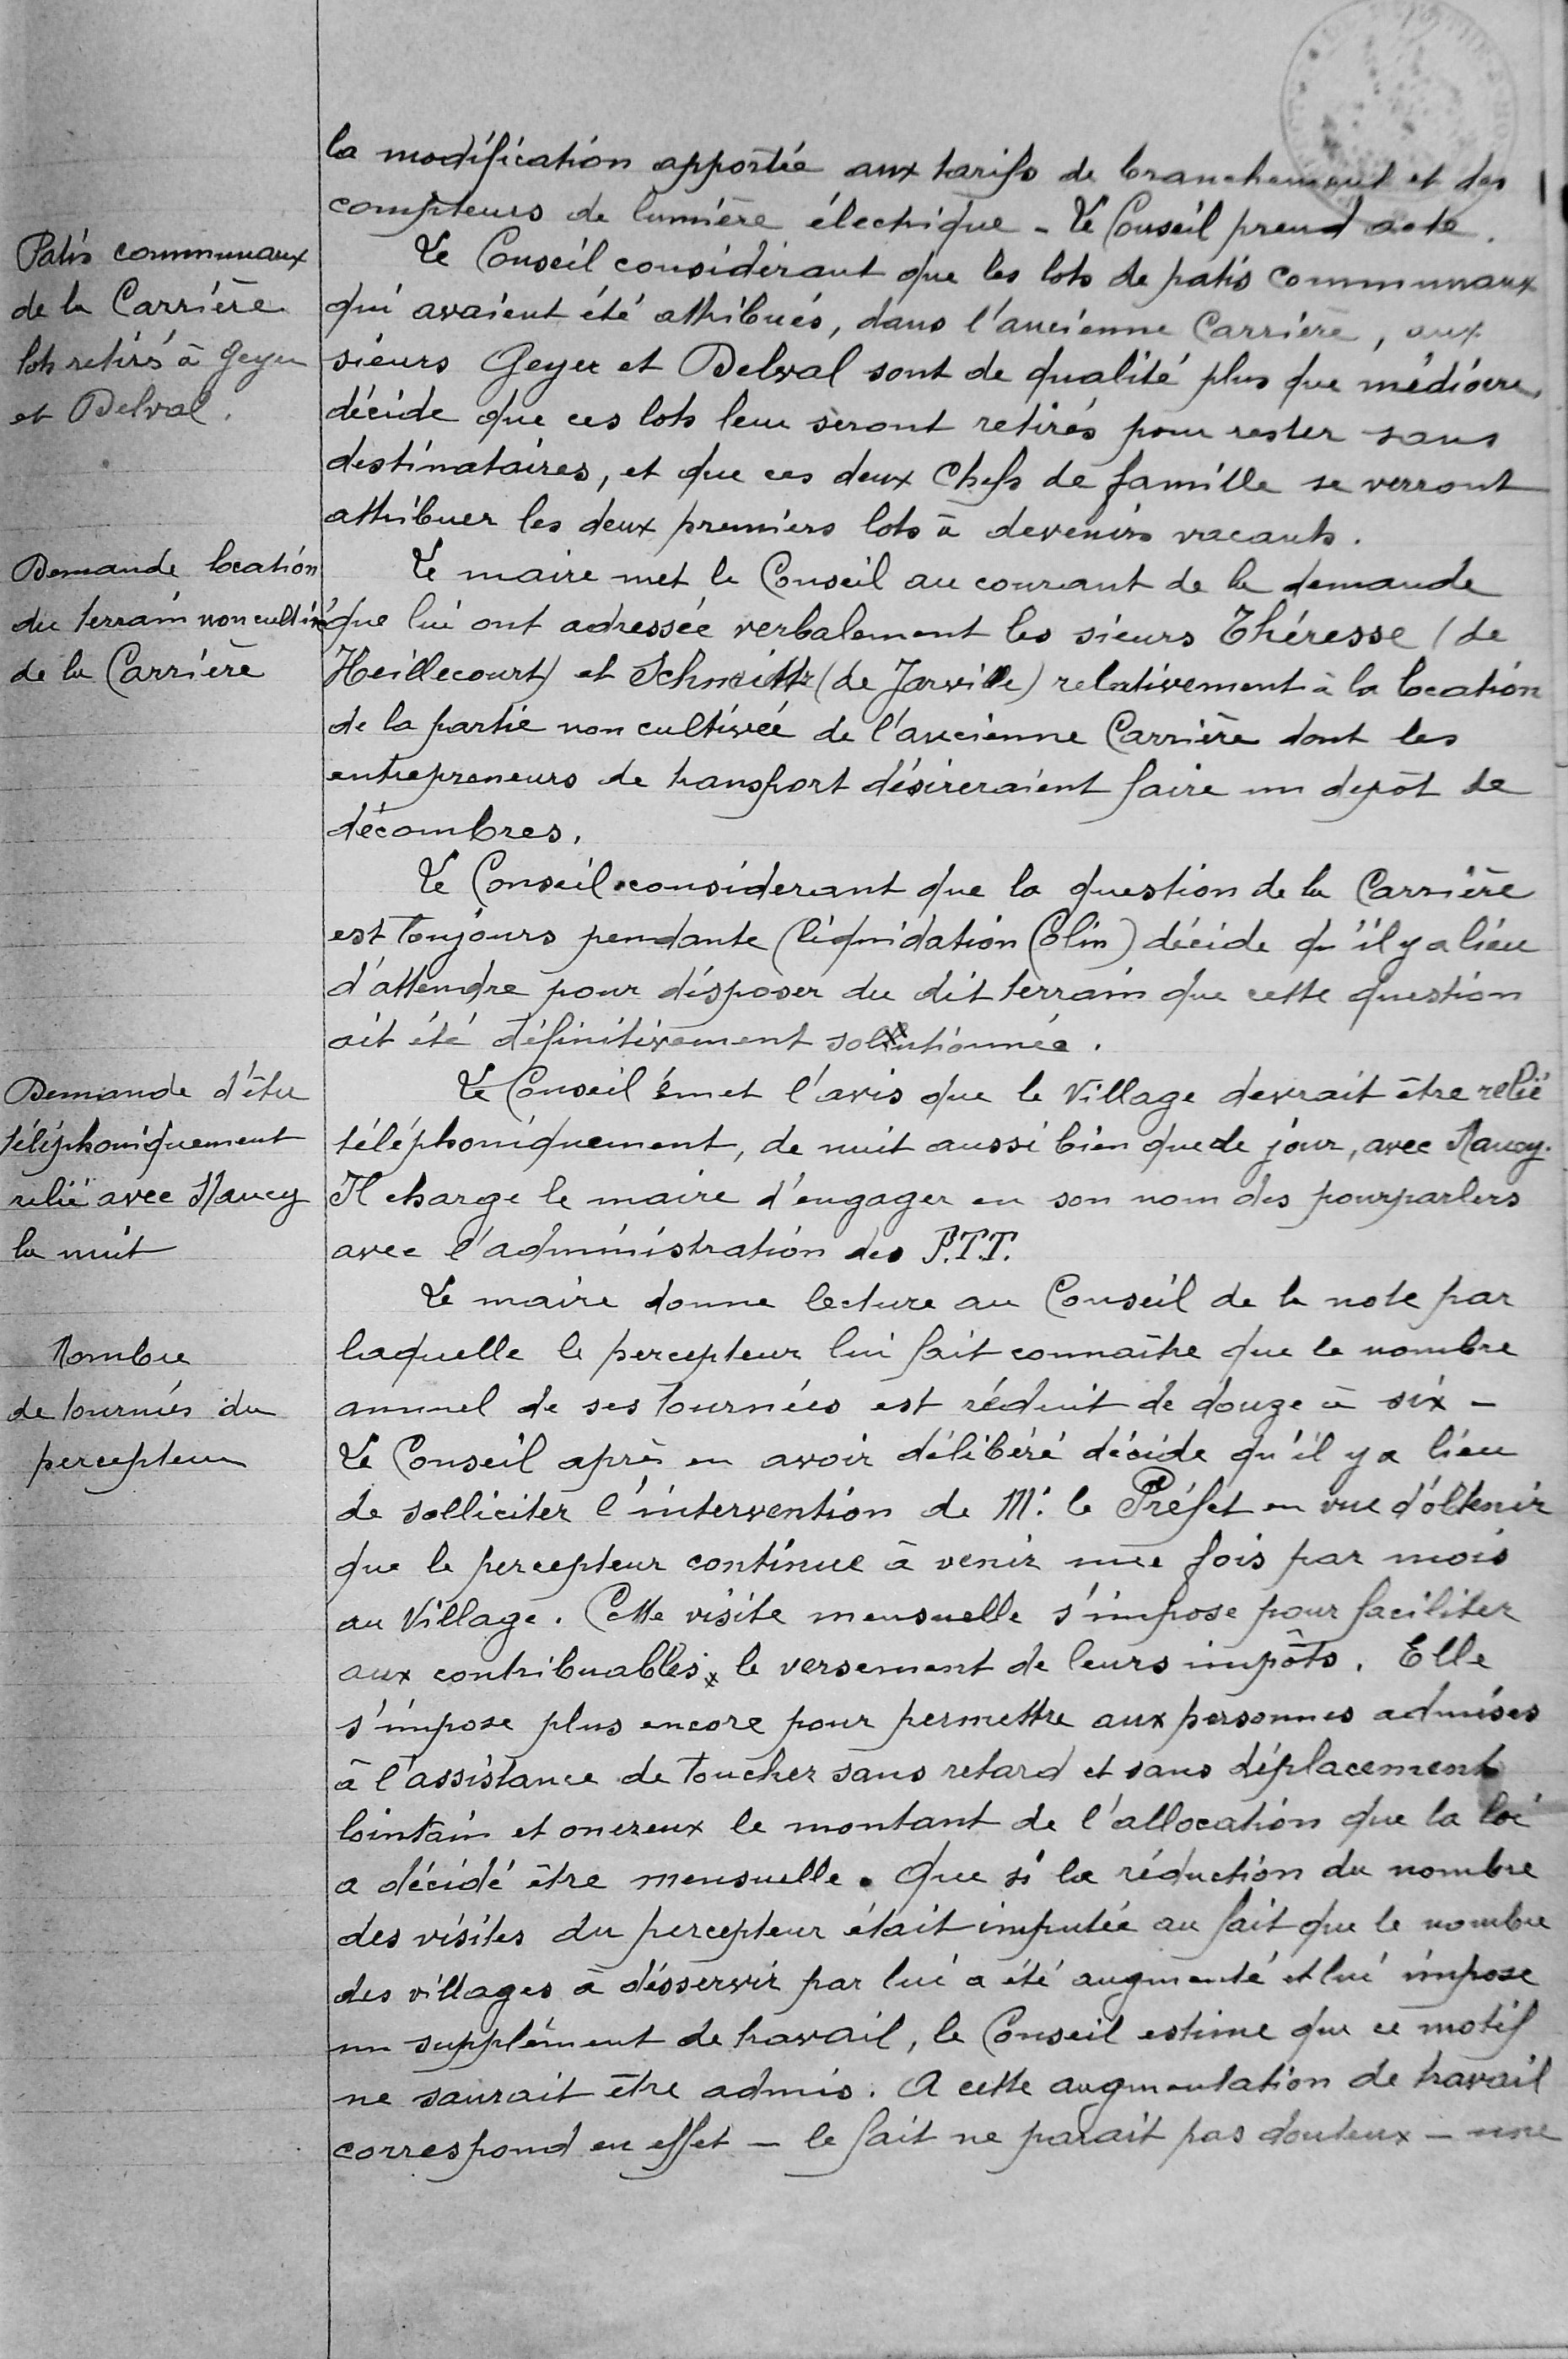 la modification apportée aux tarifs de branchement et des
compteurs de lumière électrique - Le Conseil prend acte.
Patis communaux
de la Carrière
lots retirés à Geyer
et Delval.
Le Conseil considérant que les lots de patis communaux
qui avaient été attribués, dans l'ancienne Carrière, aux
sieurs Geyer et Delval sont de qualité plus que médiocre,
décide que ces lots leur seront retirés pour rester sans
destinataires, et que ces deux Chefs de famille se verront
attribuer les deux premiers lots à devenirs vacants.
Demande location
du terrain non cultivé
de la Carrière
Le maire met le Conseil au courant de la demande
que lui ont adressée verbalement les sieurs Théresse (de
Heillecourt) et Schmitt (de Jarville) relativement à la location
de la partie non cultivée de l'ancienne Carrière dont les
entrepreneurs de transport désireraient faire un depôt de
décombres.
Le Conseil considerant que la question de la Carrière
est toujours pendante (liquidation Colin) décide qu'il y a lieu
d'attendre pour disposer du dit terrain que cette question
ait été définitivement solutionnée.
Demande d'être
téléphoniquement
relié avec Nancy
la nuit
Le Conseil émet l'avis que le Village devrait être relié
téléphoniquement, de nuit aussi bien que de jour, avec Nancy.
Il charge le maire d'engager en son nom des pourparlers
avec l'administration des P.T.T.
Nombre
de tournées du
percepteur
Le maire donne lecture au Conseil de la note par
laquelle le percepteur lui fait connaître que le nombre
annuel de ses tournées est réduit de douze à six -
Le Conseil après en avoir délibéré décide qu'il y a lieu
de solliciter l'intervention de M. le Préfet en vue d'obtenir
que le percepteur continue à venir une fois par mois
au Village. Cette visite mensuelle s'impose pour faciliter
aux contribuables le versement de leurs impôts. Elle
s'impose plus encore pour permettre aux personnes admises
à l'assistance de toucher sans retard et sans déplacement
lointain et onereux le montant de l'allocation que la loi
a décidé être mensuelle. Que si la réduction du nombre
des visites du percepteur était imputée au fait que le nombre
des villages à désservir par lui a été augmenté et lui impose
un supplément de travail, le Conseil estime que ce motif
ne saurait être admis. A cette augmentation de travail
correspond en effet - le fait ne parait pas douteux - une